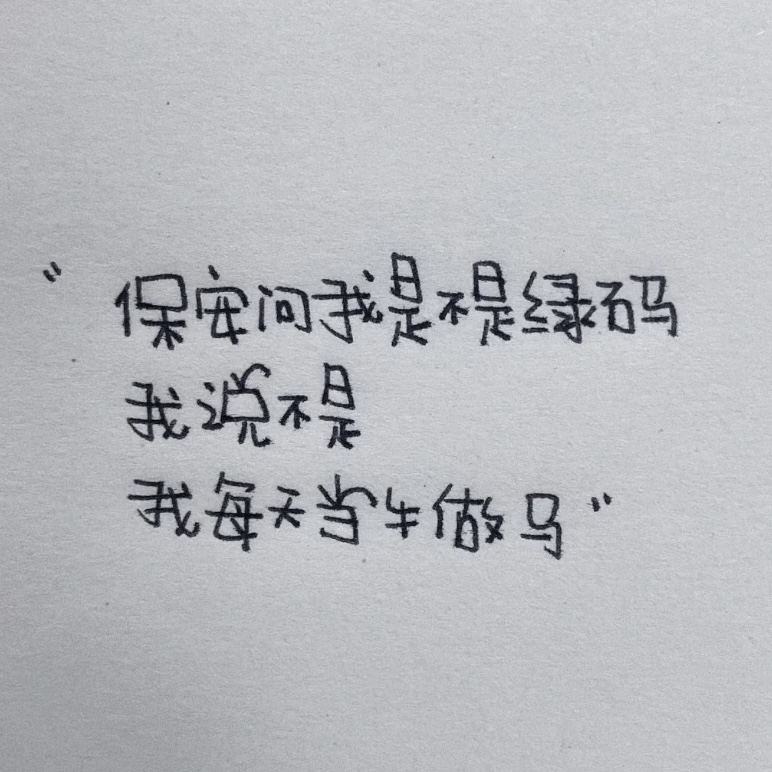 "保安问我是不是绿码
我说不是
我每天当牛做马"